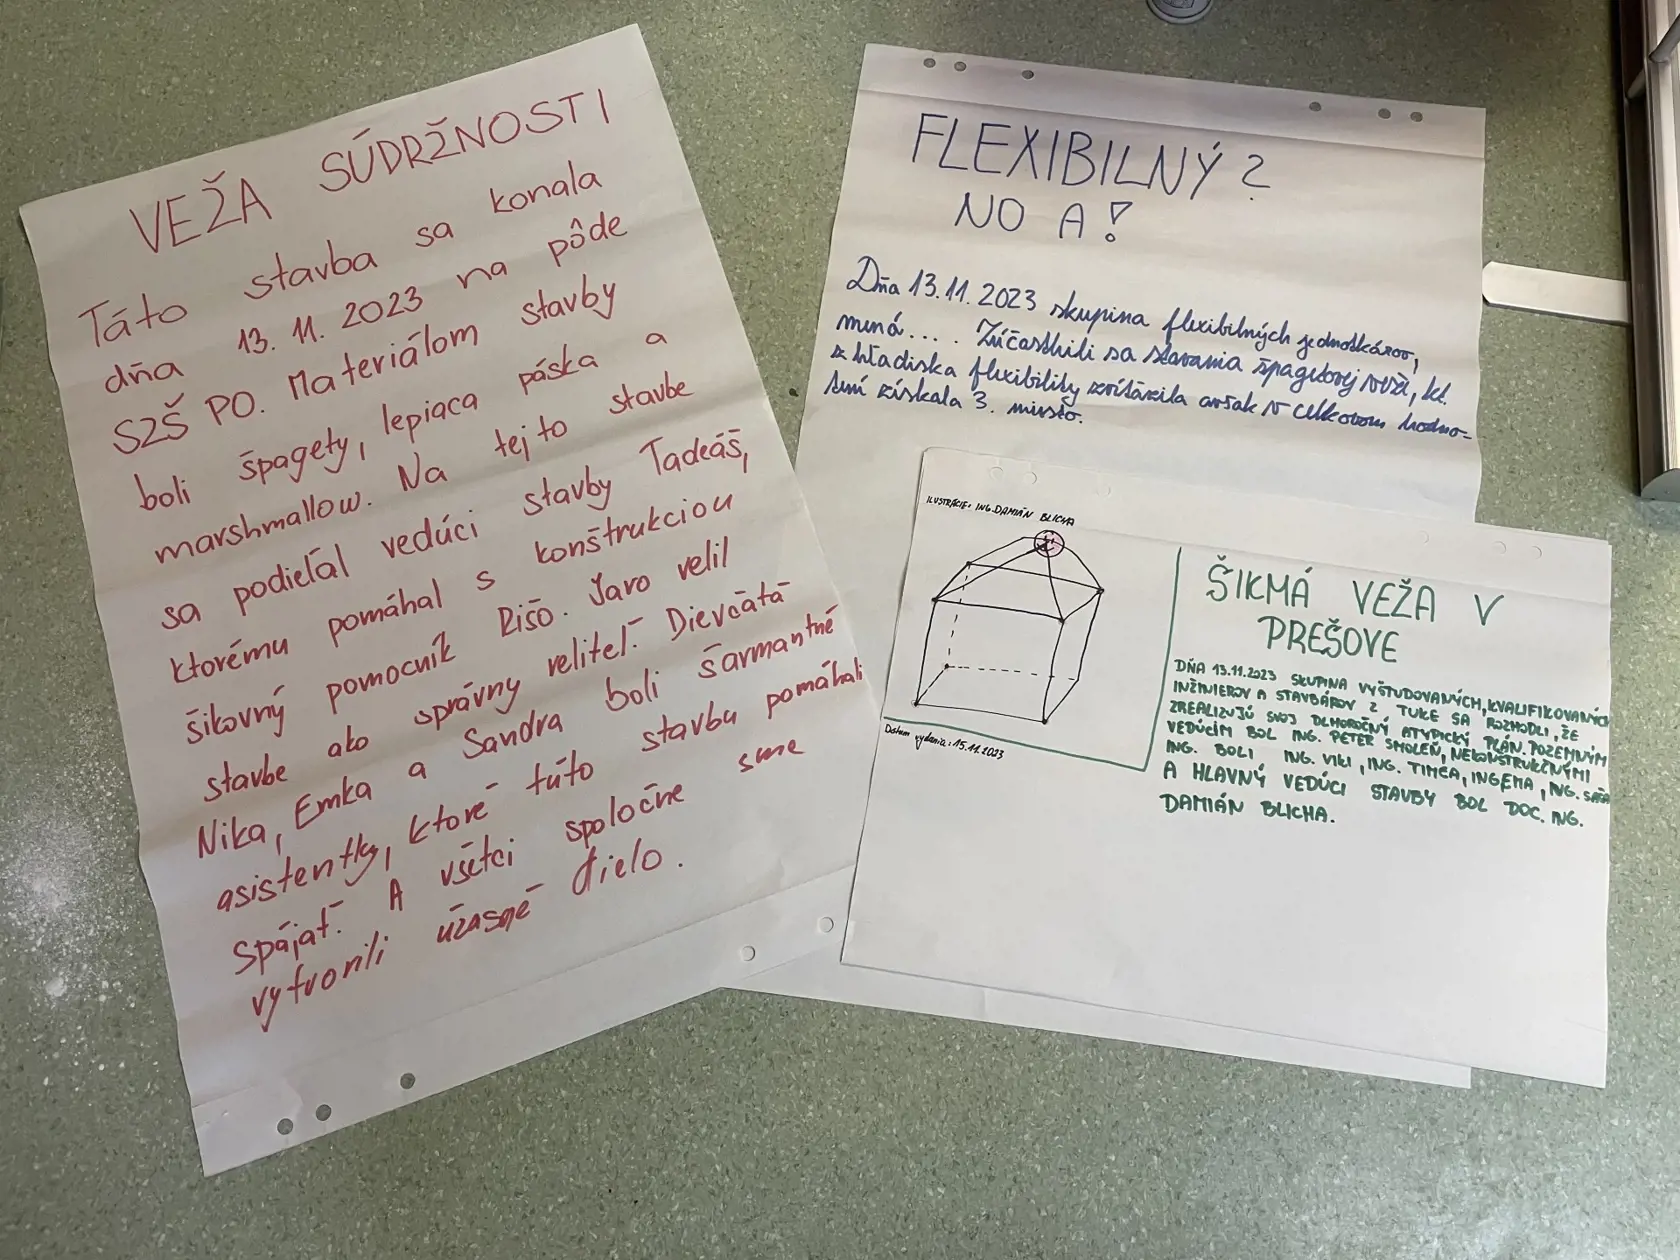 VEŽA SÚDRŽNOSTI
Táto stavba sa konala
dňa 13. 11. 2023 na pôde
SZŠ PO. Materiálom stavby
boli špagety, lepiaca páska a
marshmallow. Na tejto stavbe
sa podieľal vedúci stavby Tadeáš,
ktorému pomáhal s konštrukciou
šikovný pomocník Rišo. Jaro velil
stavbe ako správny veliteľ. Dievčatá
Nika, Emka a Sandra boli šarmantné
asistentky, ktoré túto stavbu pomáhali
spájať. A všetci spoločne sme
vytvorili úžasné dielo.
FLEXIBILNÝ?
NO A!
Dňa 13.11.2023 skupina flexibilných jednotkárov,
mená.... Zúčastnili sa stavania špagetovej veži, kt.
z hľadiska flexibility zvíťazila avšak v celkovom hodno-
tení získala 3. miesto.
ILUSTRÁCIE: ING. DAMIÁN BLICHA
Datum vydania: 15.11.2023
ŠIKMÁ VEŽA V
PREŠOVE
DŇA 13.11.2023 SKUPINA VYŠTUDOVANÝCH, KVALIFIKOVANÝCH
INŽINIEROV A STAVBÁROV Z TUKE SA ROZHODLI, ŽE
ZREALIZUJÚ SVOJ DLHOROČNÝ ATYPICKÝ PLÁN. POZEMNÝM
VEDÚCIM BOL ING. PETER SMOLEŇ, NEKONŠTRUKČNÝMI
ING. BOLI ING. VIKI, ING. TIMEA, ING EMA, ING. SAŠA
A HLAVNÝ VEDÚCI STAVBY BOL DOC. ING.
DAMIÁN BLICHA.